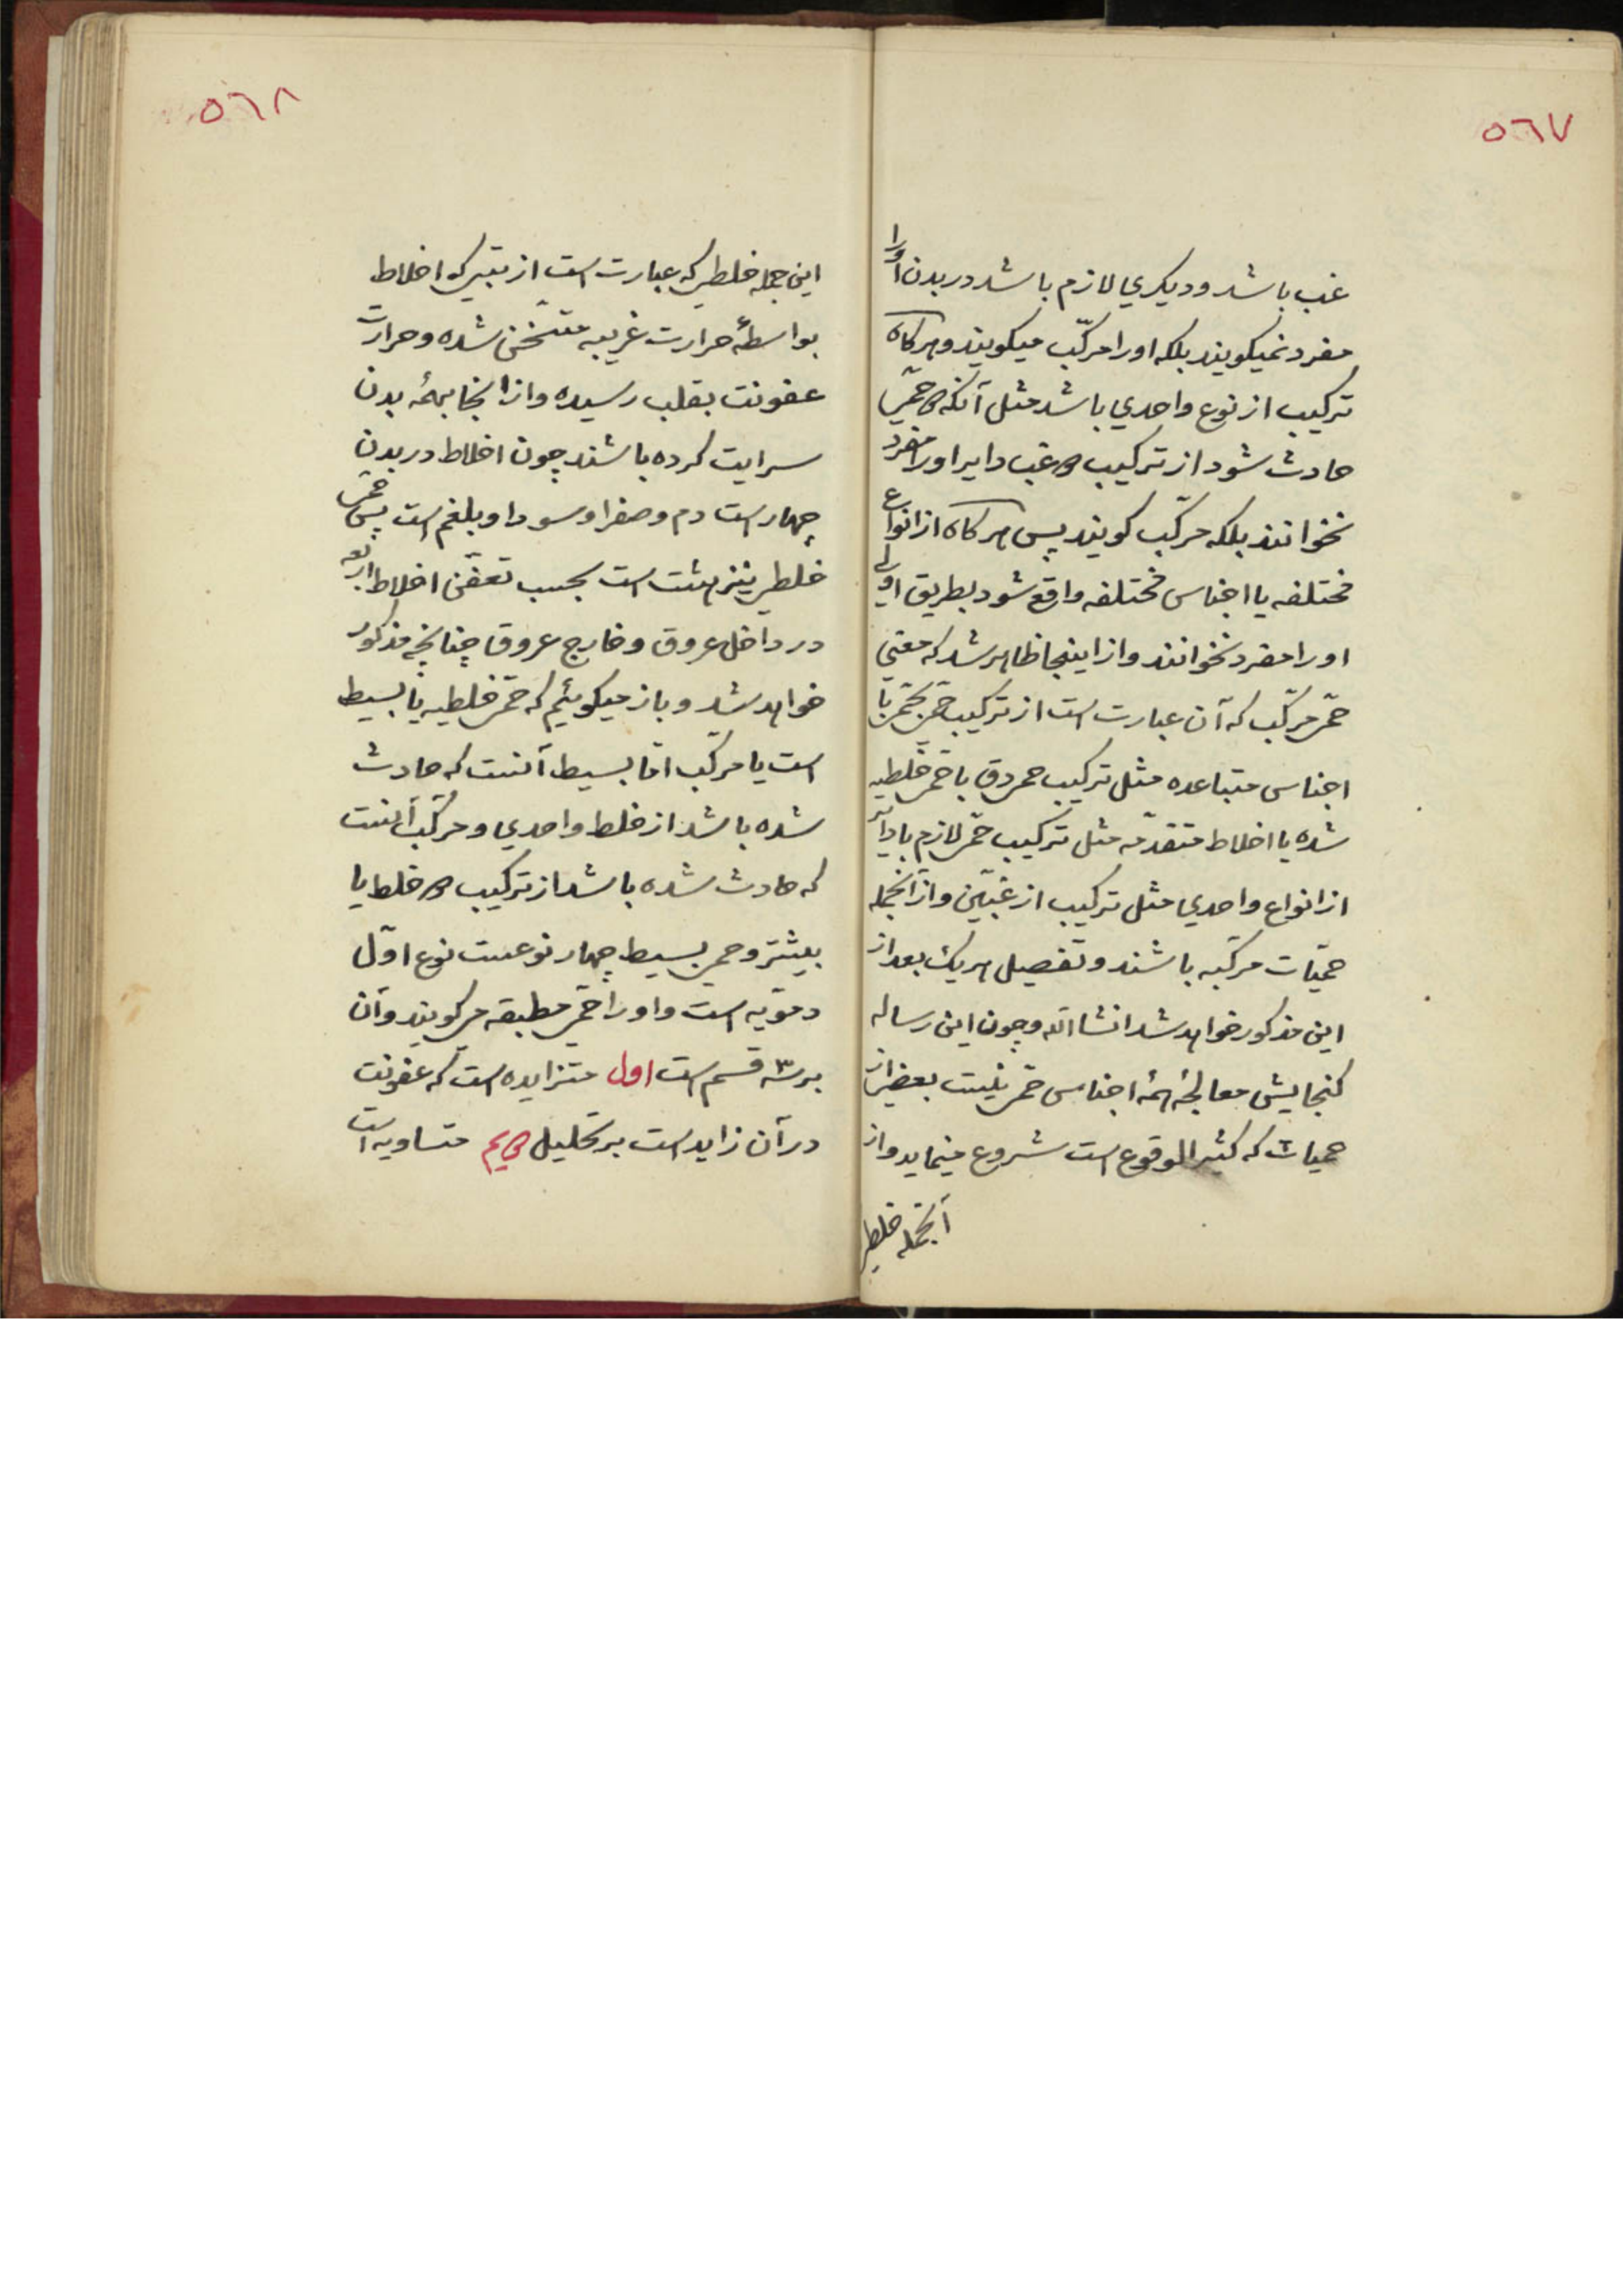 ٥٦٧
غب باشد و دیکري لازم باشد در بدن اورا
مفرد نمیکویند بلکه اورا مرکّب میکویند و هرکاه
ترکیب از نوع واحدي باشد مثل آنکه حمّی
حادث شود از ترکیب غب دایر اورا مفرد
نخوانند بلکه مرکّب کویند پس هرکاه از انواع
مختلفه یا اجناس مختلفه واقع شود بطریق اولی
اورا مفرد نخوانند و از اینجا ظاهر شد که معني
حمّی مرکّب که آن عبارت است از ترکیب حمّی بحمّی یا
اجناس متباعده مثل ترکیب حمی دق با حمّی خلطیه
شده یا اخلاط متقدّمه مثل ترکیب حمّی لازم با دایر
از انواع واحدي مثل ترکیب از غبّین و از آنجمله
حمّیات مرکّبه باشند و تفصیل هریك بعد از
این مذکور خواهد شد انشا الله و چون این رساله
کنجایش معالجهٔ همهٔ اجناس حمّی نیست بعضی از
حمیات که کثیر الوقوع است شروع مینماید و از
آنجمله خلطی
٥٦٨
این جمله خلطی که عبارت است از بتیرکه اخلاط
بواسطهٔ حرارت غریبه متسّخن شده و حرارت
عفونت بقلب رسیده و از انجا بهمهٔ بدن
سرایت کرده باشند چون اخلاط در بدن
چهار است دم و صفرا و سودا و بلغم است پس حمّی
خلطی نیز هشت است بحسب تعفّن اخلاط اربعه
در داخل عروق و خارج عروق چنانچه مذکور
خواهد شد و باز میکوئیم که حمّی خلطیه یا بسیط
است یا مرکّب امّا بسیط آنست که حادث
شده باشد از خلط واحدي و مرکّب آنست
که حادث شده باشد از ترکیب خلط یا
بیشتر و حمی بسیط چهار نوعست نوع اوّل
دمویّه است و اورا حمّی مطبقه می کویند و آن
بر سه قسم است اول متزایده است که عفونت
در آن زاید است بر تحلیل متساویه است